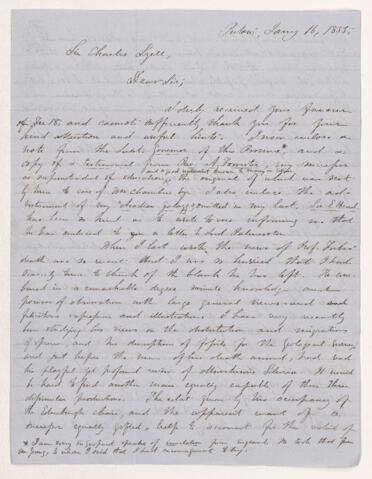 Pictou, Jany 16, 1855.
Sir Charles Lyell,
Dear Sir;
I duly received your favour
of Dec 18, and cannot sufficiently thank you for your
kind attention and useful hints. I now enclose a
note from the Lieut. Governor of this Province*, and a
copy of a testimonial from Rev. A. Forrester, my successor
as superintendent of education, the original of which was sent
by him to one of the
advertisement of my "Acadian geology," omitted in my last. Sir E. Head
has been so kind as to write to me informing me that
he has enclosed to you a letter to Lord Palmerston.
When I last wrote the news of Prof. Forbes'
death was so recent that I was so hurried that I had
scarcely time to think of the blank he has left. He com-
bined in a remarkable degree minute knowledge and
powers of observation with large general views and
felicitous expression and illustration. I have very recently
been studying his views on the distribution and migrations
of species, and his description of fossils for the Geological Survey,
and just before the news of his death arrived, had read
his playful yet profound review of Murchison's Siluria. It would
be hard to find another man equally capable of these three
dissimilar productions. The eclat given by his occupancy of
the Edinburgh chair, and the apparent want of a
successor equally gifted, help to account for the